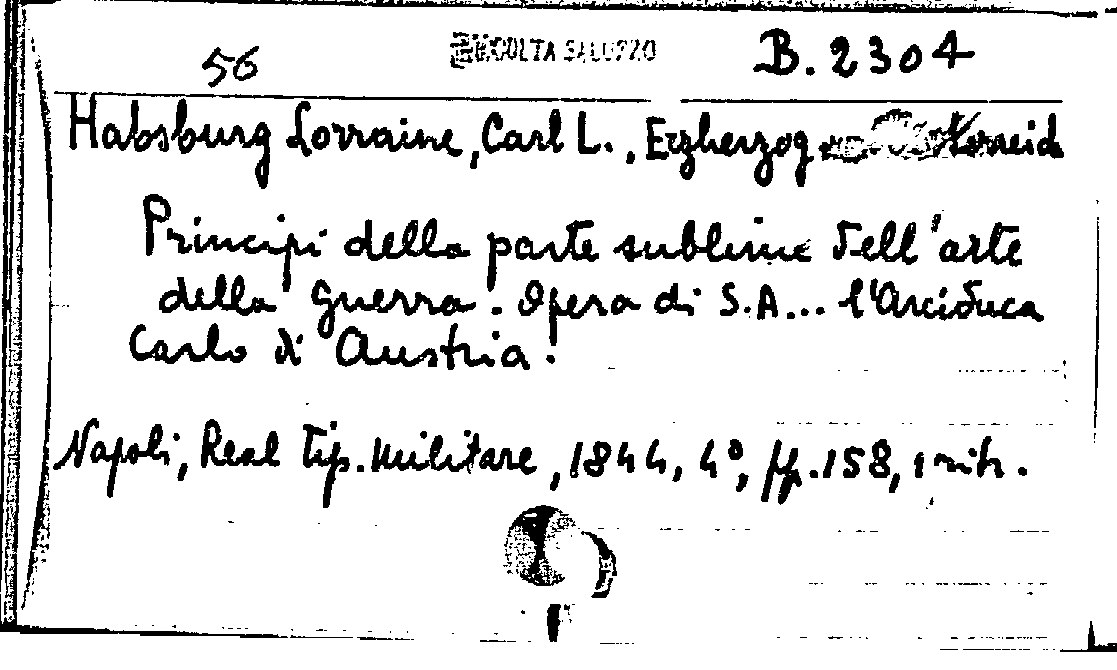 56 RACCOLTA SALUZZO B.2304
Habsburg Lorraine, Carl L., Erzherzog
Principi della parte sublime dell'arte
della guerra. Opera di S.A... l'Arciduca
Carlo di Austria.
Napoli, Real Tip. Militare, 1844, 4°, pp. 158, 1 ritr.